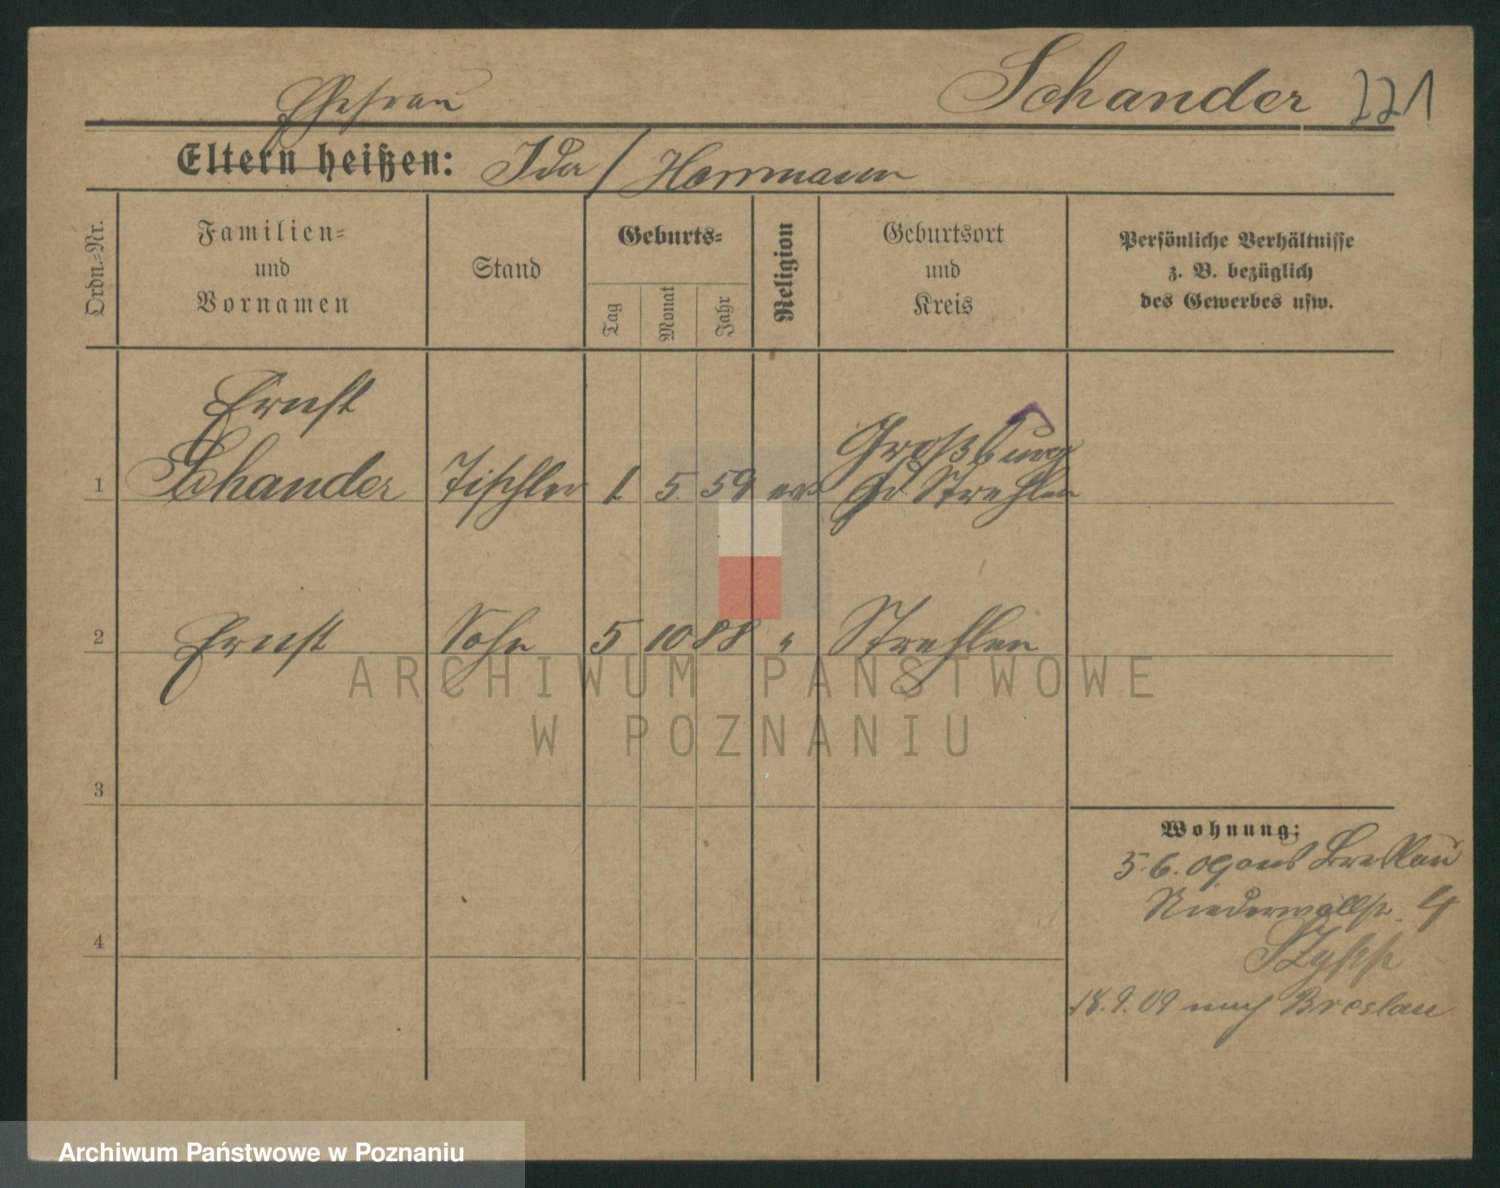 Schander 221
Ehefrau
Eltern heißen: Ida / Herrmann
Ordn.-Nr.
Familien-
und
Vornamen
Stand
Geburts-
Tag
Monat
Jahr
Religion
Geburtsort
und
Kreis
Persönliche Verhältnisse
z. B. bezüglich
des Gewerbes usw.
Ernst
Großburg
1 Schander Tischler 1 5 59 ev Strehlen
2 Ernst Sohn 5 10 88 " Strehlen
ARCHIWUM PAŃSTWOWE
W POZNANIU
3
Wohnung:
5.6.09 aus Breslau
Niederwallstr.
4
18.9.09 nach Breslau
Archiwum Państwowe w Poznaniu